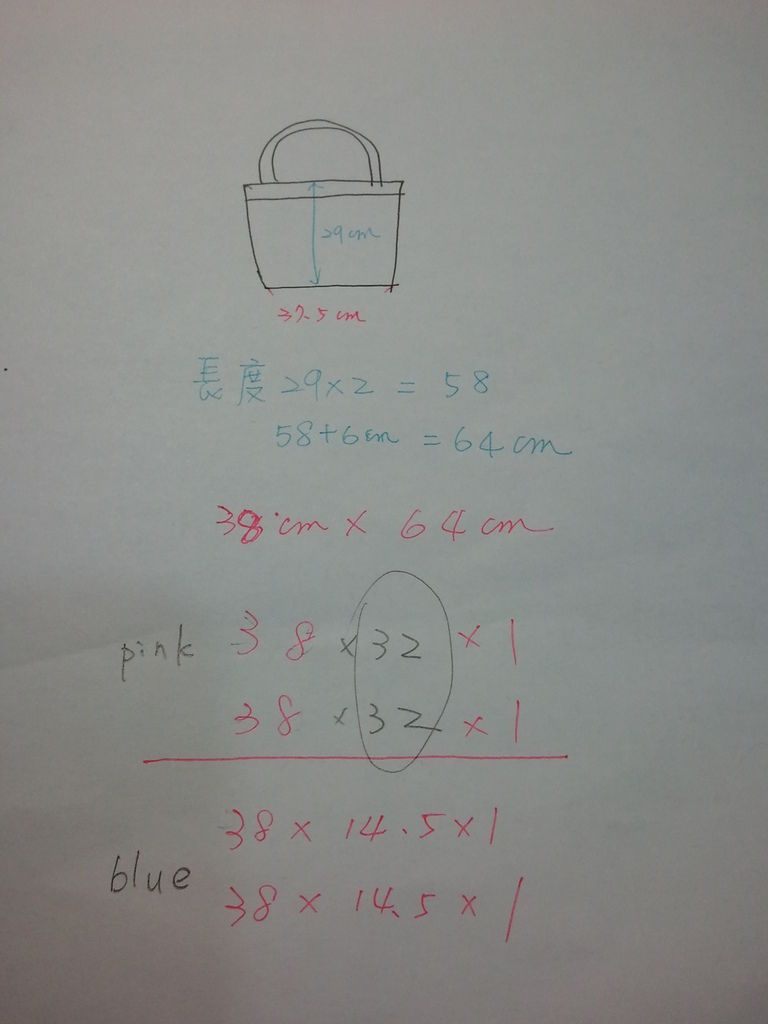 29cm
37.5cm
長度 29×2 = 58
58+6cm = 64cm
38cm × 64cm
pink 38 × 32 × 1
38 × 32 × 1
38 × 14.5 × 1
blue
38 × 14.5 × 1